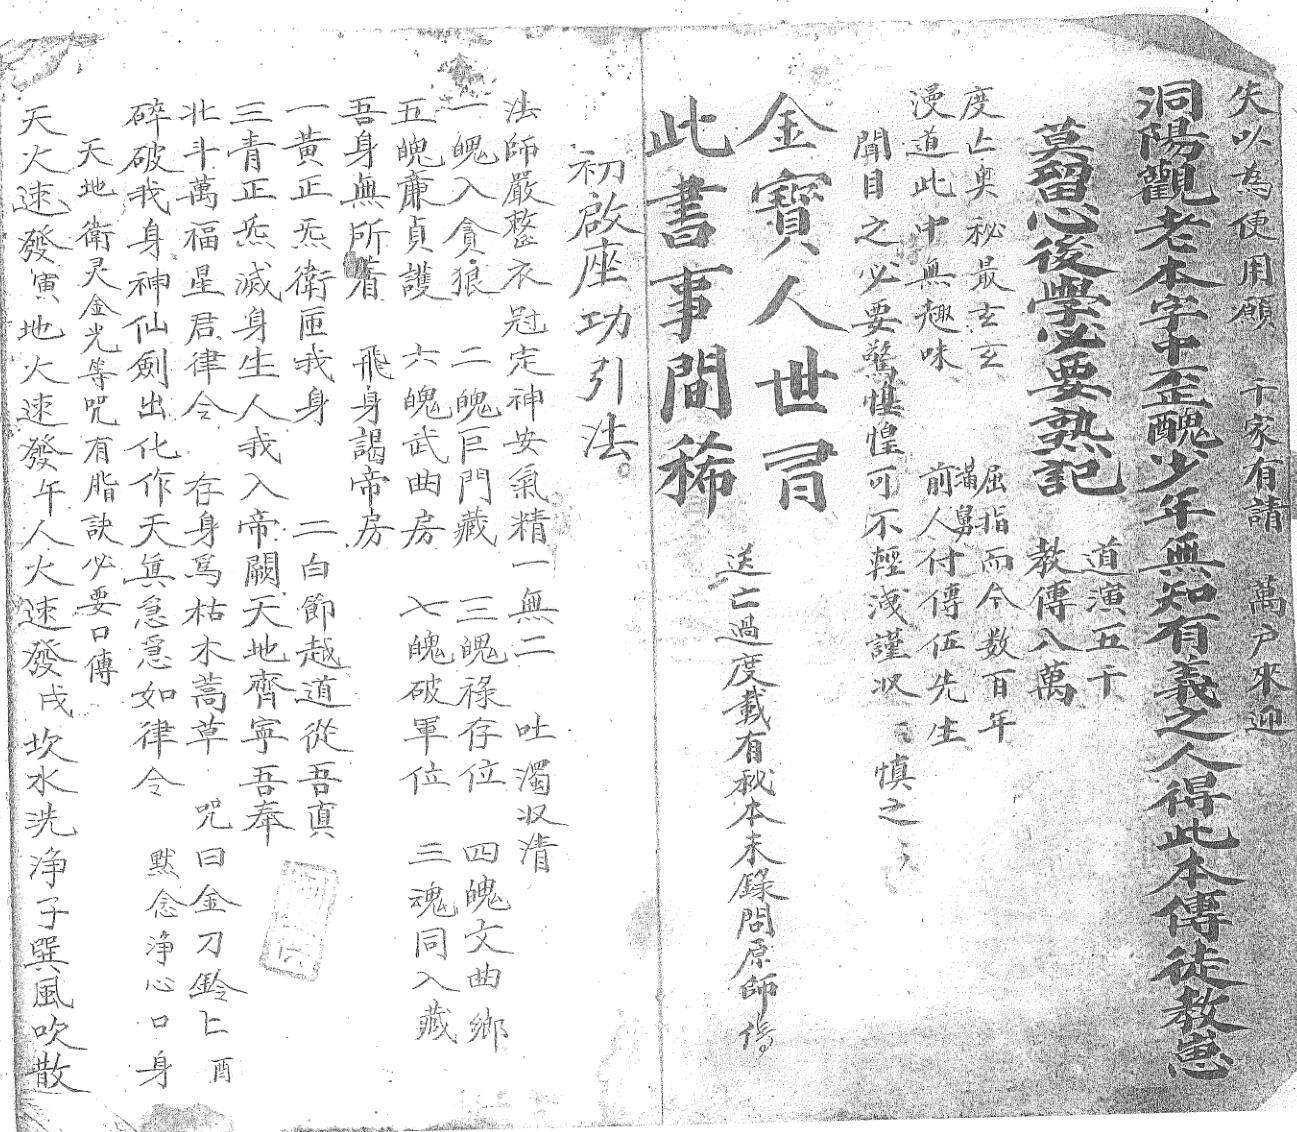 失以為便用願　千家有請　萬户來迎
洞陽觀老本字中歪醜少年無知有義之人得此本傳徒教崽
道演五千
教傳八萬
莫留心後學必要熟記
度亡奥秘最玄玄　屈指而今数百年
漫道此中無趣味　前人付傳伍先生
聞目之必要驚惧惶可不輕洩謹収　慎之
金寶人世有
此書事間稀
送亡過度載有秘本未錄問原師傳
初啟座功引法。
法師嚴整衣冠定神安氣精一無二　吐濁収清
一魄入貪狼　二魄巨門藏　三魄祿存位　四魄文曲鄉
五魄亷貞護　六魄武曲房　七魄破軍位　三魂同入藏
吾身無所着　飛身謁帝房
一黃正炁衛匝我身　二白節越道從吾真
三青正炁滅身生人我入帝闕天地齊寧吾奉
北斗萬福星君律令　存身爲枯木蒿草　咒曰金刀鈴匕酉
碎破我身神仙劍出化作天真急急如律令　默念淨心口身
天地衛灵金光等咒有脂訣必要口傳
天火速發寅地火速發午人火速發戌坎水洗淨子巽風吹散